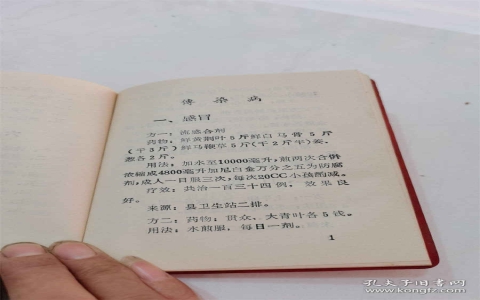 傳染病
一、感冒
方一：流感合剂
药物：鲜黄荆叶5斤鲜白马骨5斤
（干3斤）鲜马鞭草5斤（干2斤半）姜、
葱各2斤。
用法：加水至10000毫升，煎两次合併
浓缩成4800毫升加尼白金万分之五为防腐
剂，成人一日服三次，每次20CC小孩酌减。
疗效：共治一百三十四例，效果良
好。
来源：县卫生站二排。
方二：药物：贯众、大青叶各5钱。
用法：水煎服，每日一剂。
1
孔夫子旧书网
www.kongfz.com